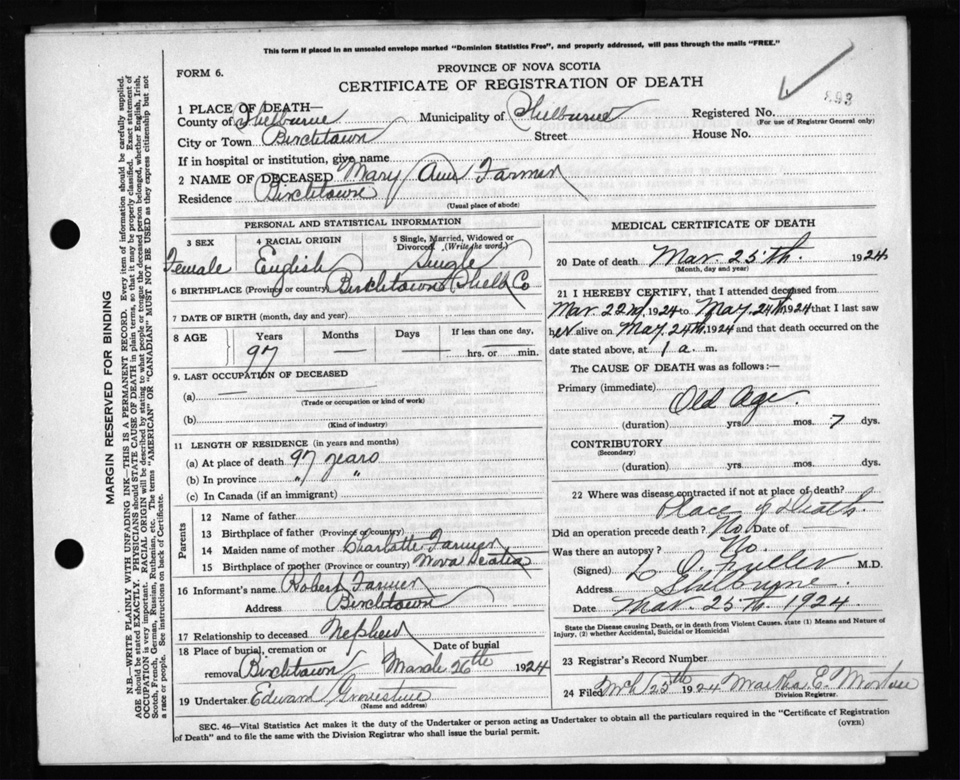 This form if placed in an unsealed envelope marked "Dominion Statistics Free", and properly addressed, will pass through the mails "FREE."
FORM 6.
PROVINCE OF NOVA SCOTIA
CERTIFICATE OF REGISTRATION OF DEATH
893
1 PLACE OF DEATH—
County of Shelburne Municipality of Shelburne Registered No.
(For use of Registrar General only)
City or Town Birchtown Street House No.
If in hospital or institution, give name
2 NAME OF DECEASED Mary Ann Farmer
Residence Birchtown
(Usual place of abode)
MARGIN RESERVED FOR BINDING
N.B.—WRITE PLAINLY WITH UNFADING INK—THIS IS A PERMANENT RECORD. Every item of information should be carefully supplied.
AGE should be stated EXACTLY. PHYSICIANS should STATE CAUSE OF DEATH in plain terms, so that it may be properly classified. Exact statement of
OCCUPATION is very important. RACIAL ORIGIN will be described by stating to what people or tongue the deceased person belonged, whether English, Irish,
Scotch, French, German, Russian, Ruthenian, etc. The terms "AMERICAN" OR "CANADIAN" MUST NOT BE USED as they express citizenship but not
a race or people. See instructions on back of Certificate.
PERSONAL AND STATISTICAL INFORMATION
3 SEX 4 RACIAL ORIGIN 5 Single, Married, Widowed or
Divorced (Write the word.)
Female English Single
6 BIRTHPLACE (Province or country) Birchtown Shelb Co
7 DATE OF BIRTH (month, day and year)
8 AGE Years Months Days If less than one day,
97 — — hrs. or min.
9. LAST OCCUPATION OF DECEASED
(a) —
(Trade or occupation or kind of work)
(b)
(Kind of industry)
11 LENGTH OF RESIDENCE (in years and months)
(a) At place of death 97 years
(b) In province " "
(c) In Canada (if an immigrant)
Parents
12 Name of father
13 Birthplace of father (Province or country)
14 Maiden name of mother Charlotte Farmer
15 Birthplace of mother (Province or country) Nova Scotia
16 Informant's name Robert Farmer
Address Birchtown
17 Relationship to deceased Nephew
18 Place of burial, cremation or Date of burial
removal Birchtown March 26th 1924
19 Undertaker Edward
(Name and address)
MEDICAL CERTIFICATE OF DEATH
20 Date of death Mar. 25th. 1924
(Month, day and year)
21 I HEREBY CERTIFY, that I attended deceased from
Mar 22nd, 1924 to May. 24th 1924 that I last saw
her alive on May. 24th, 1924 and that death occurred on the
date stated above, at 1 a. m.
The CAUSE OF DEATH was as follows:—
Primary (immediate)
Old Age.
(duration) yrs. mos. 7 dys.
CONTRIBUTORY
(Secondary)
(duration) yrs. mos. dys.
22 Where was disease contracted if not at place of death?
Place of Death
Did an operation precede death? No Date of
Was there an autopsy? No.
(Signed) L. O. Fuller M.D.
Address Shelburne
Date Mar. 25th. 1924
State the Disease causing Death, or in death from Violent Causes, state (1) Means and Nature of
Injury, (2) whether Accidental, Suicidal or Homicidal
23 Registrar's Record Number
24 Filed Mch 25th 1924 Martha E.
Division Registrar.
SEC. 46—Vital Statistics Act makes it the duty of the Undertaker or person acting as Undertaker to obtain all the particulars required in the "Certificate of Registration
of Death" and to file the same with the Division Registrar who shall issue the burial permit. (OVER)